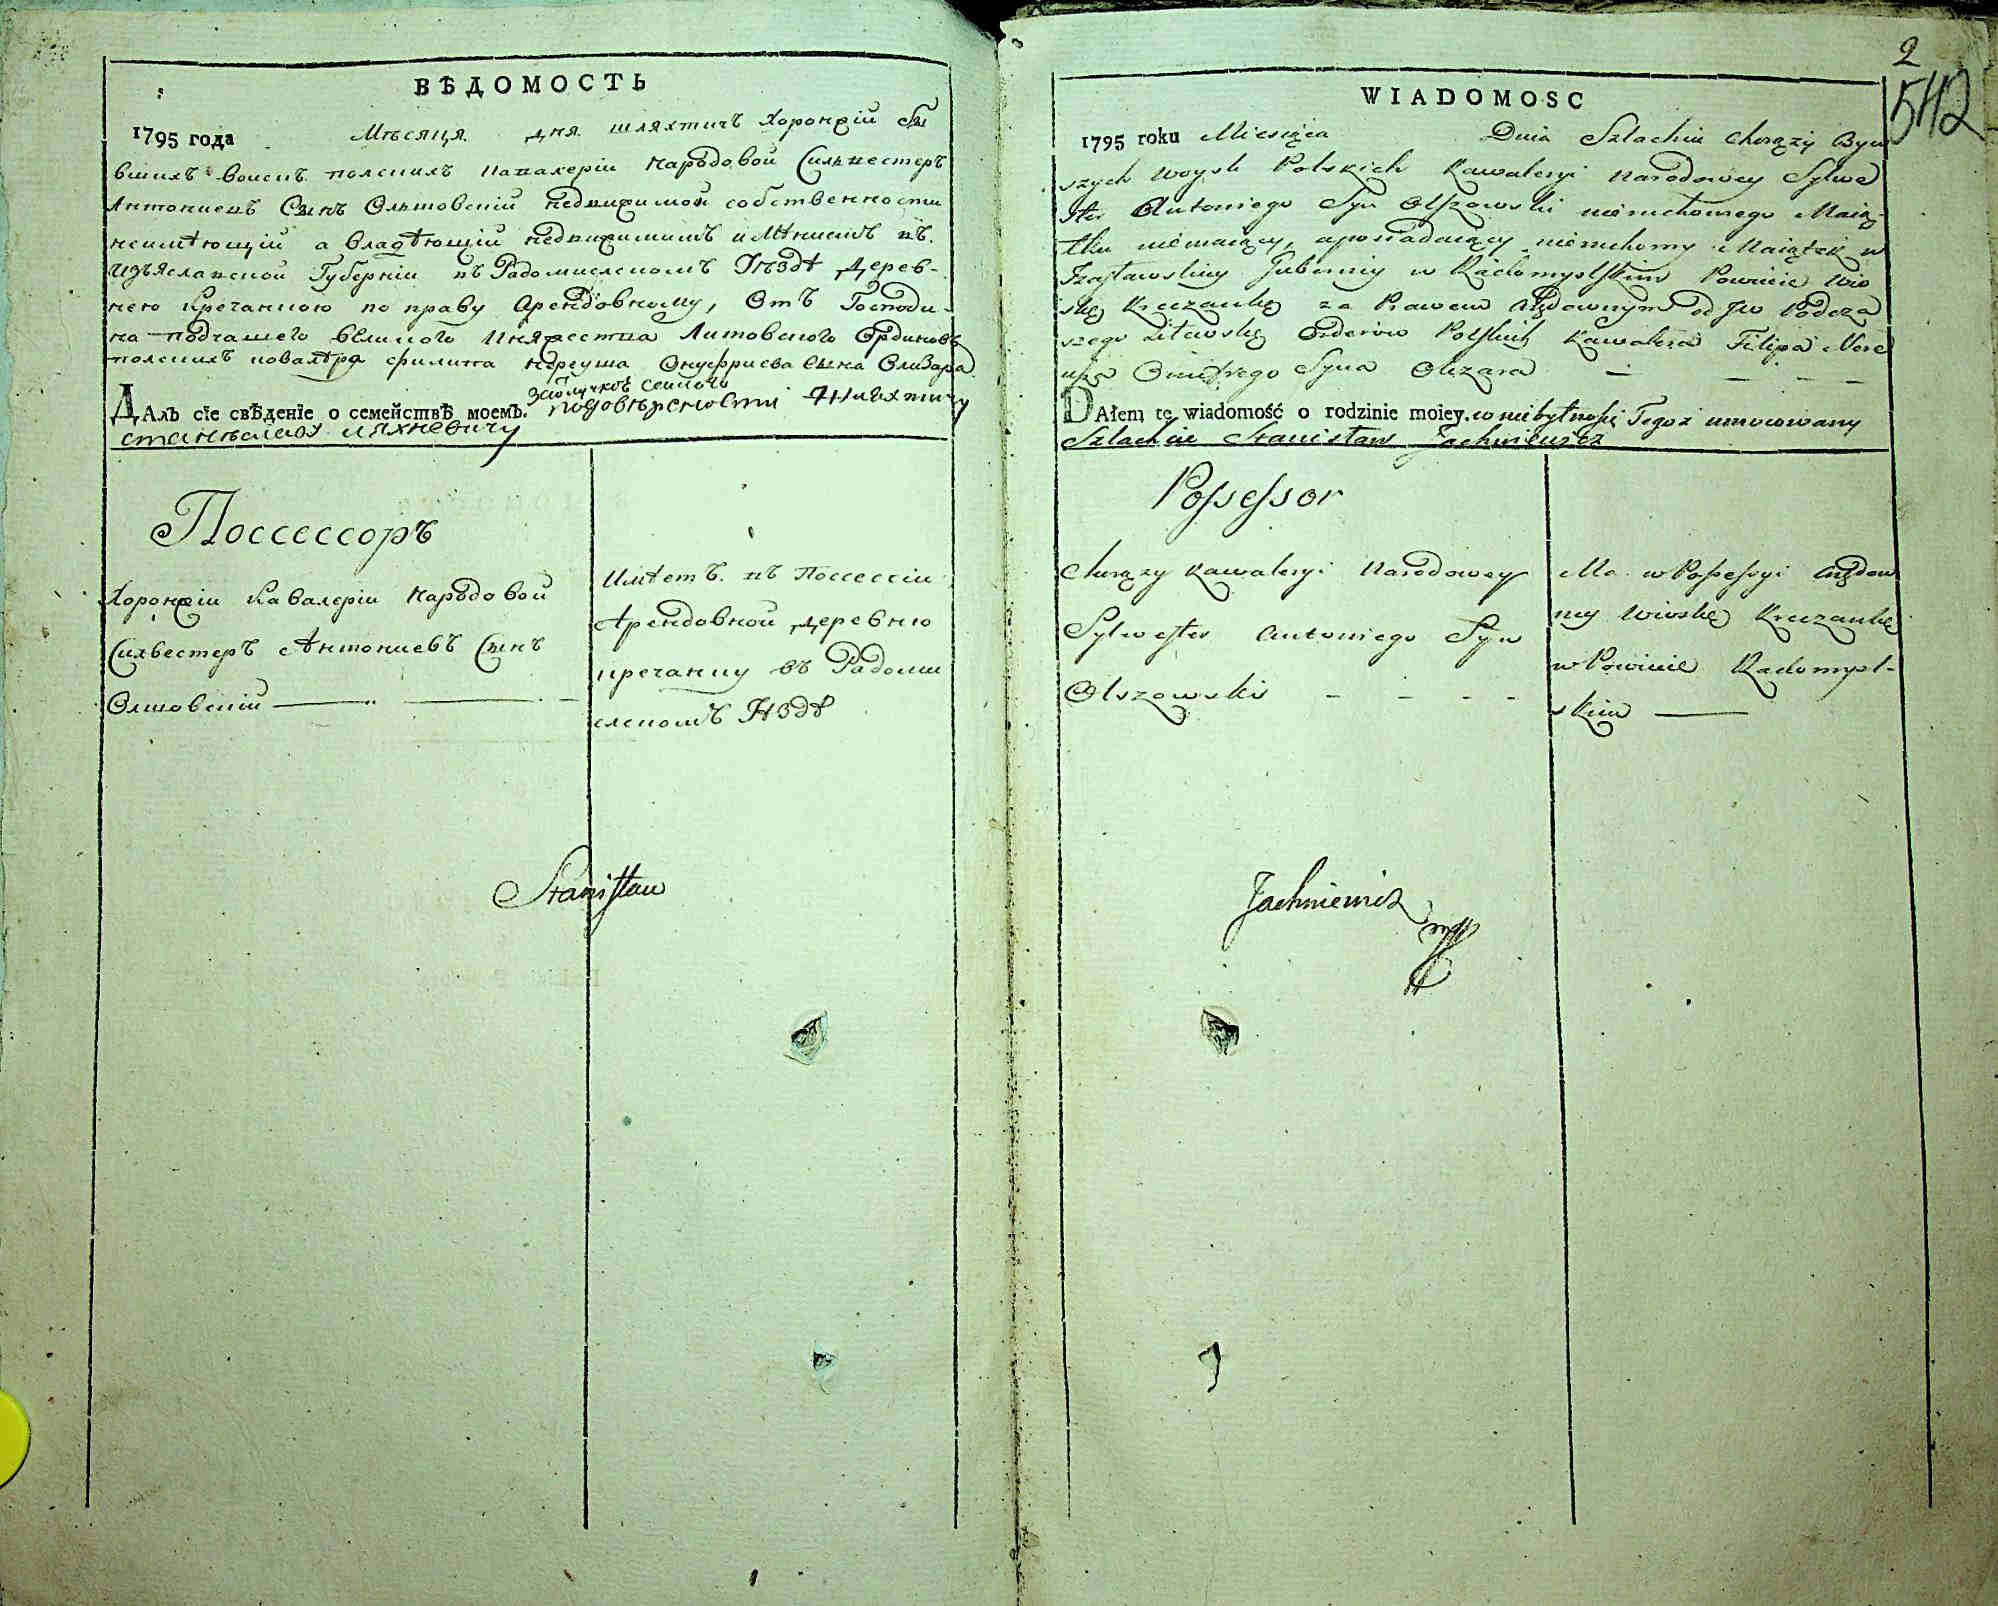 ВѢДОМОСТЬ
1795 года Мѣсяця дня шляхтичъ Хоронжій бы
вшихъ воискъ полскихъ кавалеріи Народовой Сильвестеръ
Антониевъ Сынъ Ольшовскій недвижимой собственности
неимѣющій а владѣющій недвижимимъ имѣниемъ въ
Изъяславской Губерніи въ Радомисленомъ Уѣздѣ Дерев-
нею Кречанкою по праву Арендовному, Отъ Господи-
на подчашего великого Княжества Литовского Ординовъ
полскихъ ковалѣра Филипа Нереуша Онуфриева Сына Олизара
ДАлъ сїе свѣденїе о семействѣ моемъ.
Станѣславу Ляхневичу
Поссессоръ
Хоронжіи Кавалеріи Народовой
Силвестеръ Антониевъ Сынъ
Олшовскій
Имѣетъ въ Поссессіи
Арендовной деревню
кречанку въ Радоми
сленомъ УѢздѣ
Stanisław
2
542
WIADOMOSC
1795 roku Miesiąca Dnia Szlachcic Chorąży Byw
szych Woysk Polskich Kawaleryi Narodowey Sylwe
ster Antoniego Syn Olszowski nieruchomego Mają-
tku niemaiący, a posiadaiący nieruchomy Maiątek w
Izasławskiey Gubernij w Radomyslskim Powiecie Wio
skę Kreczankę za Prawem Arędownym od JW Podcza
szego Litewskie Orderów Polskich Kawalera Filipa Nere
usza Onufrego Syna Olizara
DAłem tę wiadomość o rodzinie moiey. w niebytności Tegoż umocowany
Szlachcic Stanisław Jachniewicz
Possessor
Chorąży Kawaleryi Narodowey
Sylwester Antoniego Syn
Olszowski
Ma w Possessyi Arędow
ney Wioskę Kreczankę
w Powiecie Radomysl-
skim
Jachniewicz
mp